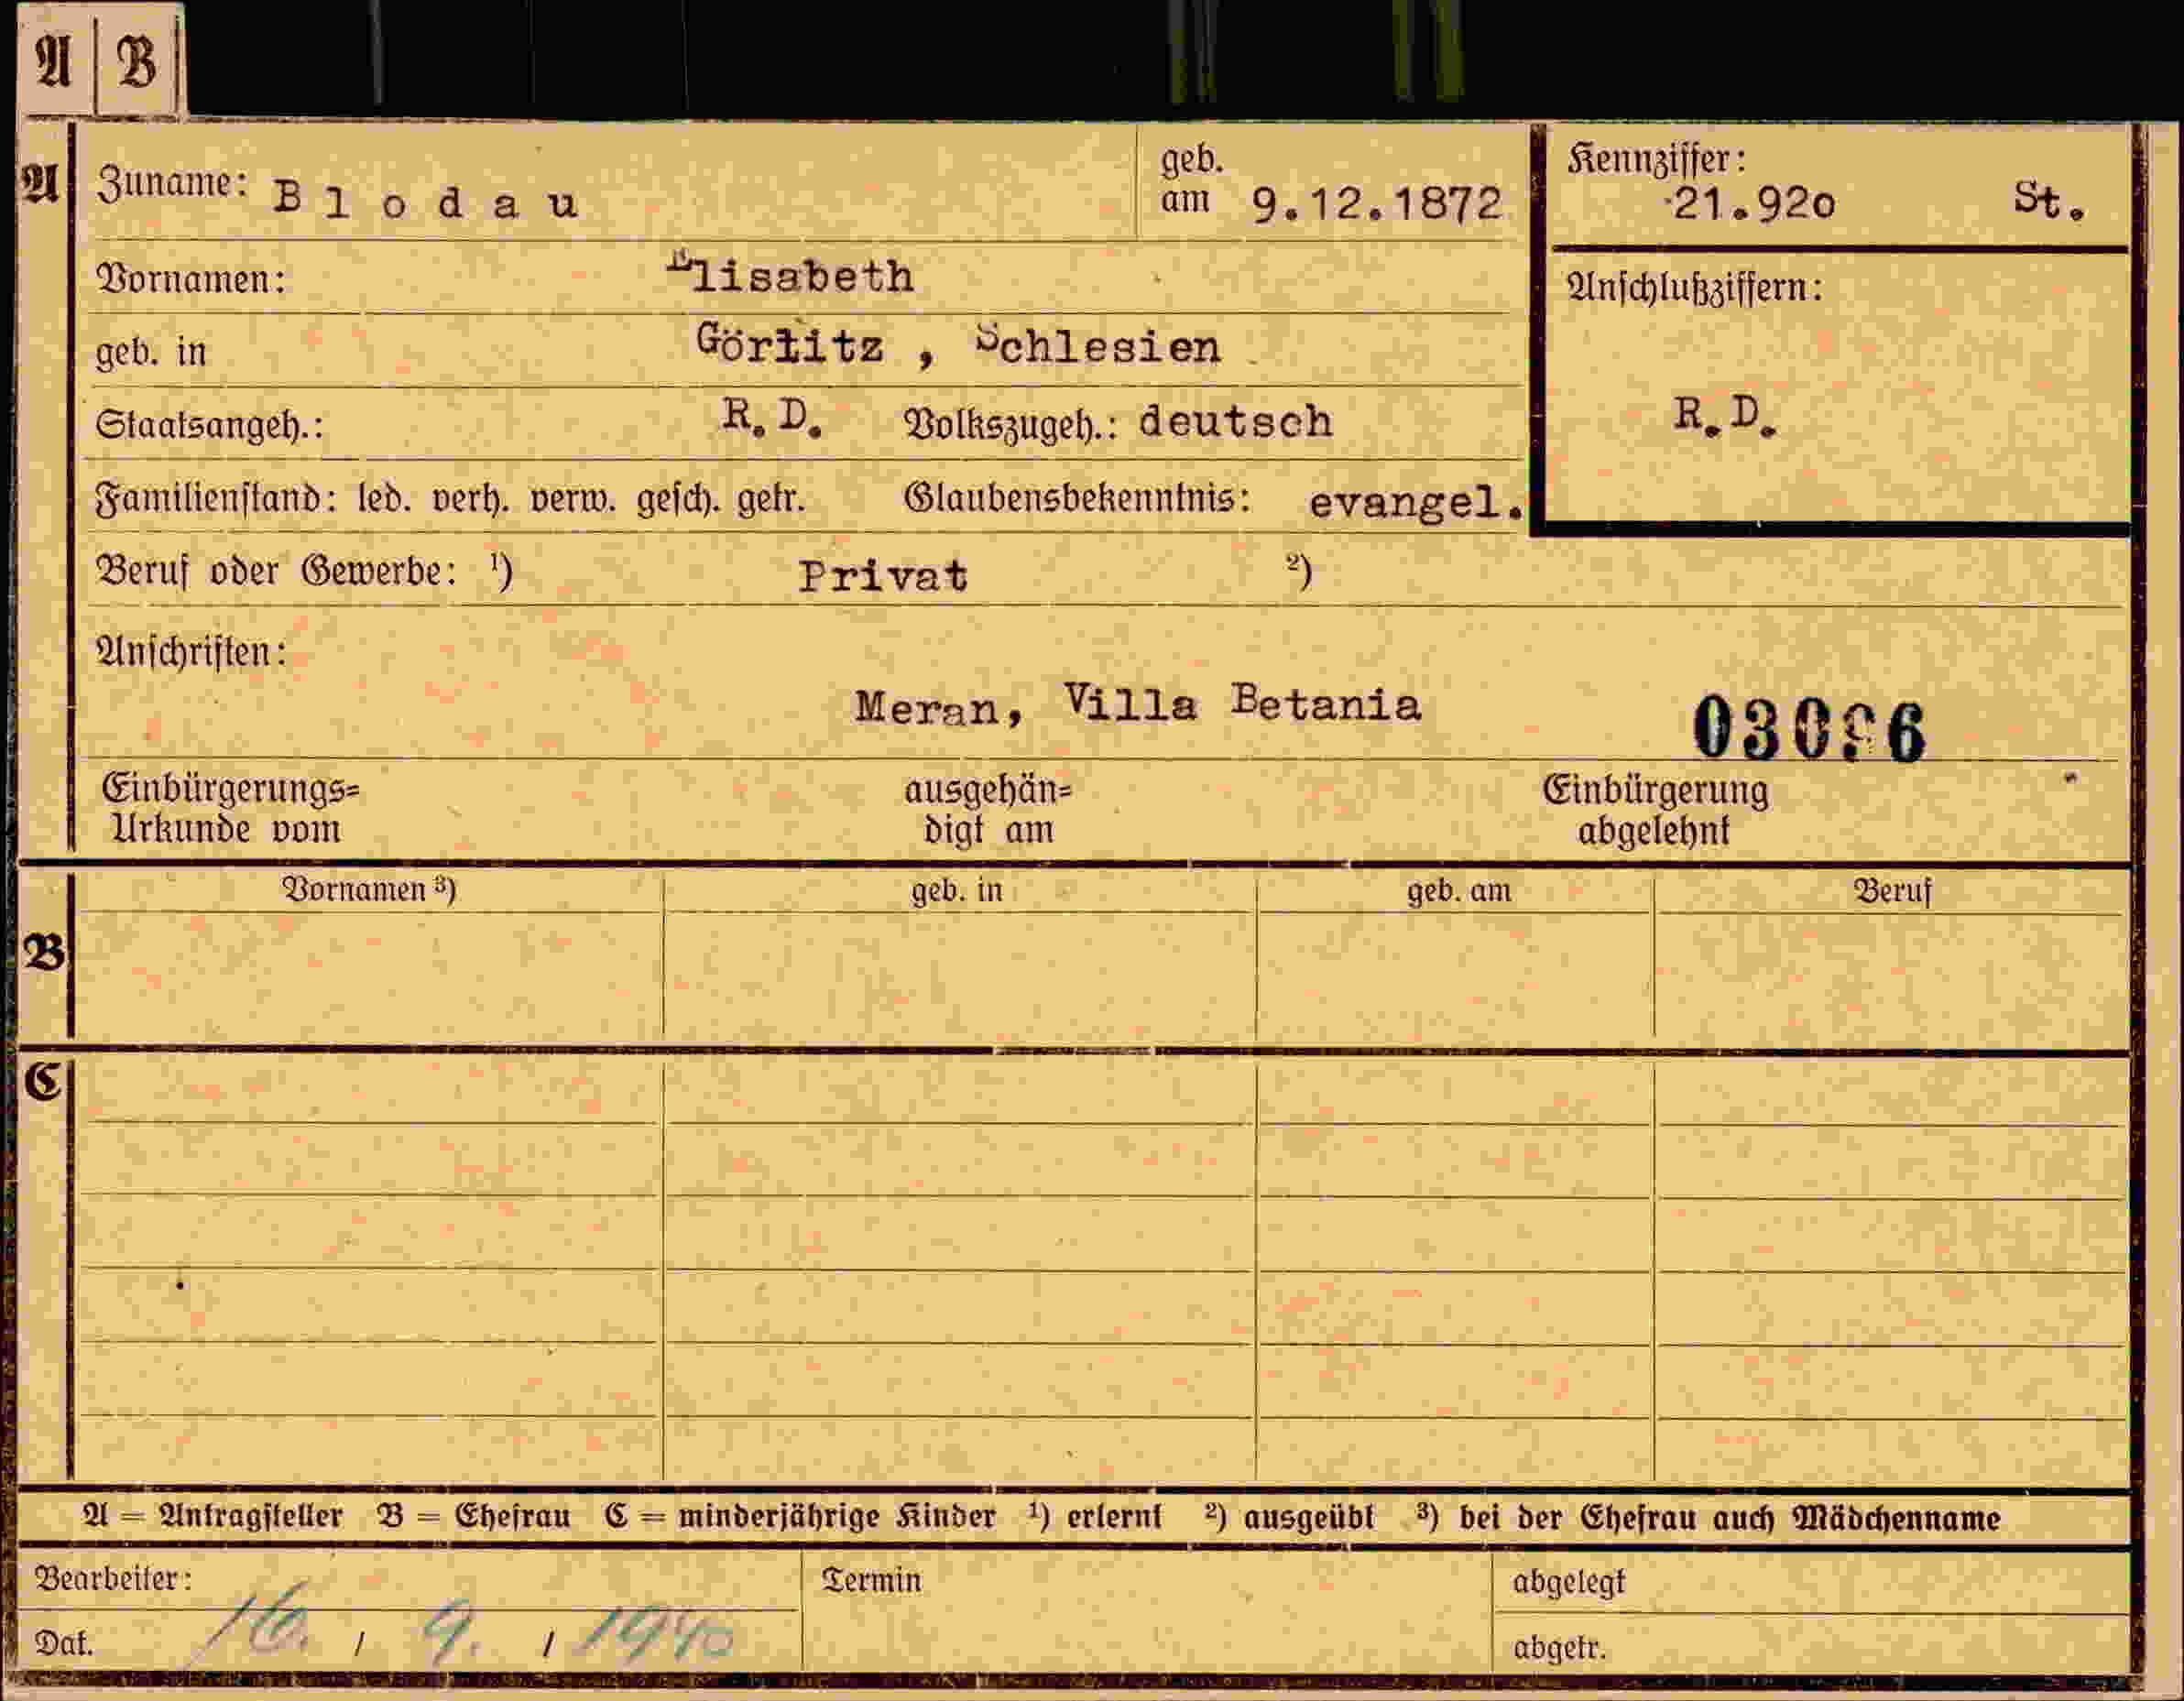 A B
A Zuname: Blodau geb. am 9.12.1872 Kennziffer: 21.920 St.
Vornamen: Elisabeth Anschlußziffern:
geb. in Görlitz , Schlesien
Staatsangeh.: R.D. Volkszugeh.: deutsch R.D.
Familienstand: led. verh. verw. gesch. getr. Glaubensbekenntnis: evangel.
Beruf oder Gewerbe: ¹) Privat ²)
Anschriften:
Meran, Villa Betania
Einbürgerungs= ausgehän= Einbürgerung
Urkunde vom digt am abgelehnt
Vornamen ³) geb. in geb. am Beruf
B
C
A = Antragsteller B = Ehefrau C = minderjährige Kinder ¹) erlernt ²) ausgeübt ³) bei der Ehefrau auch Mädchenname
Bearbeiter: Termin abgelegt
Dat. 16. / 9. / 1940 abgetr.